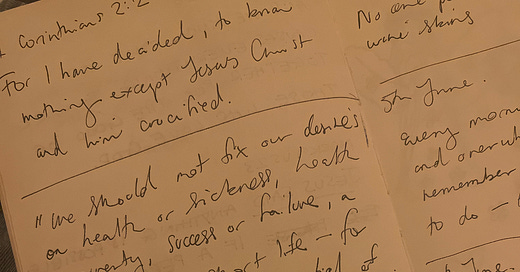 Corinthians 2:2
For I have decided, to know
nothing except Jesus Christ
and him crucified.
"we should not fix our desires
on health or sickness, health
success or failure, a
life - for
of
No one
wine skins
5th June.
every morn
and overwh
remember
to do -
June.